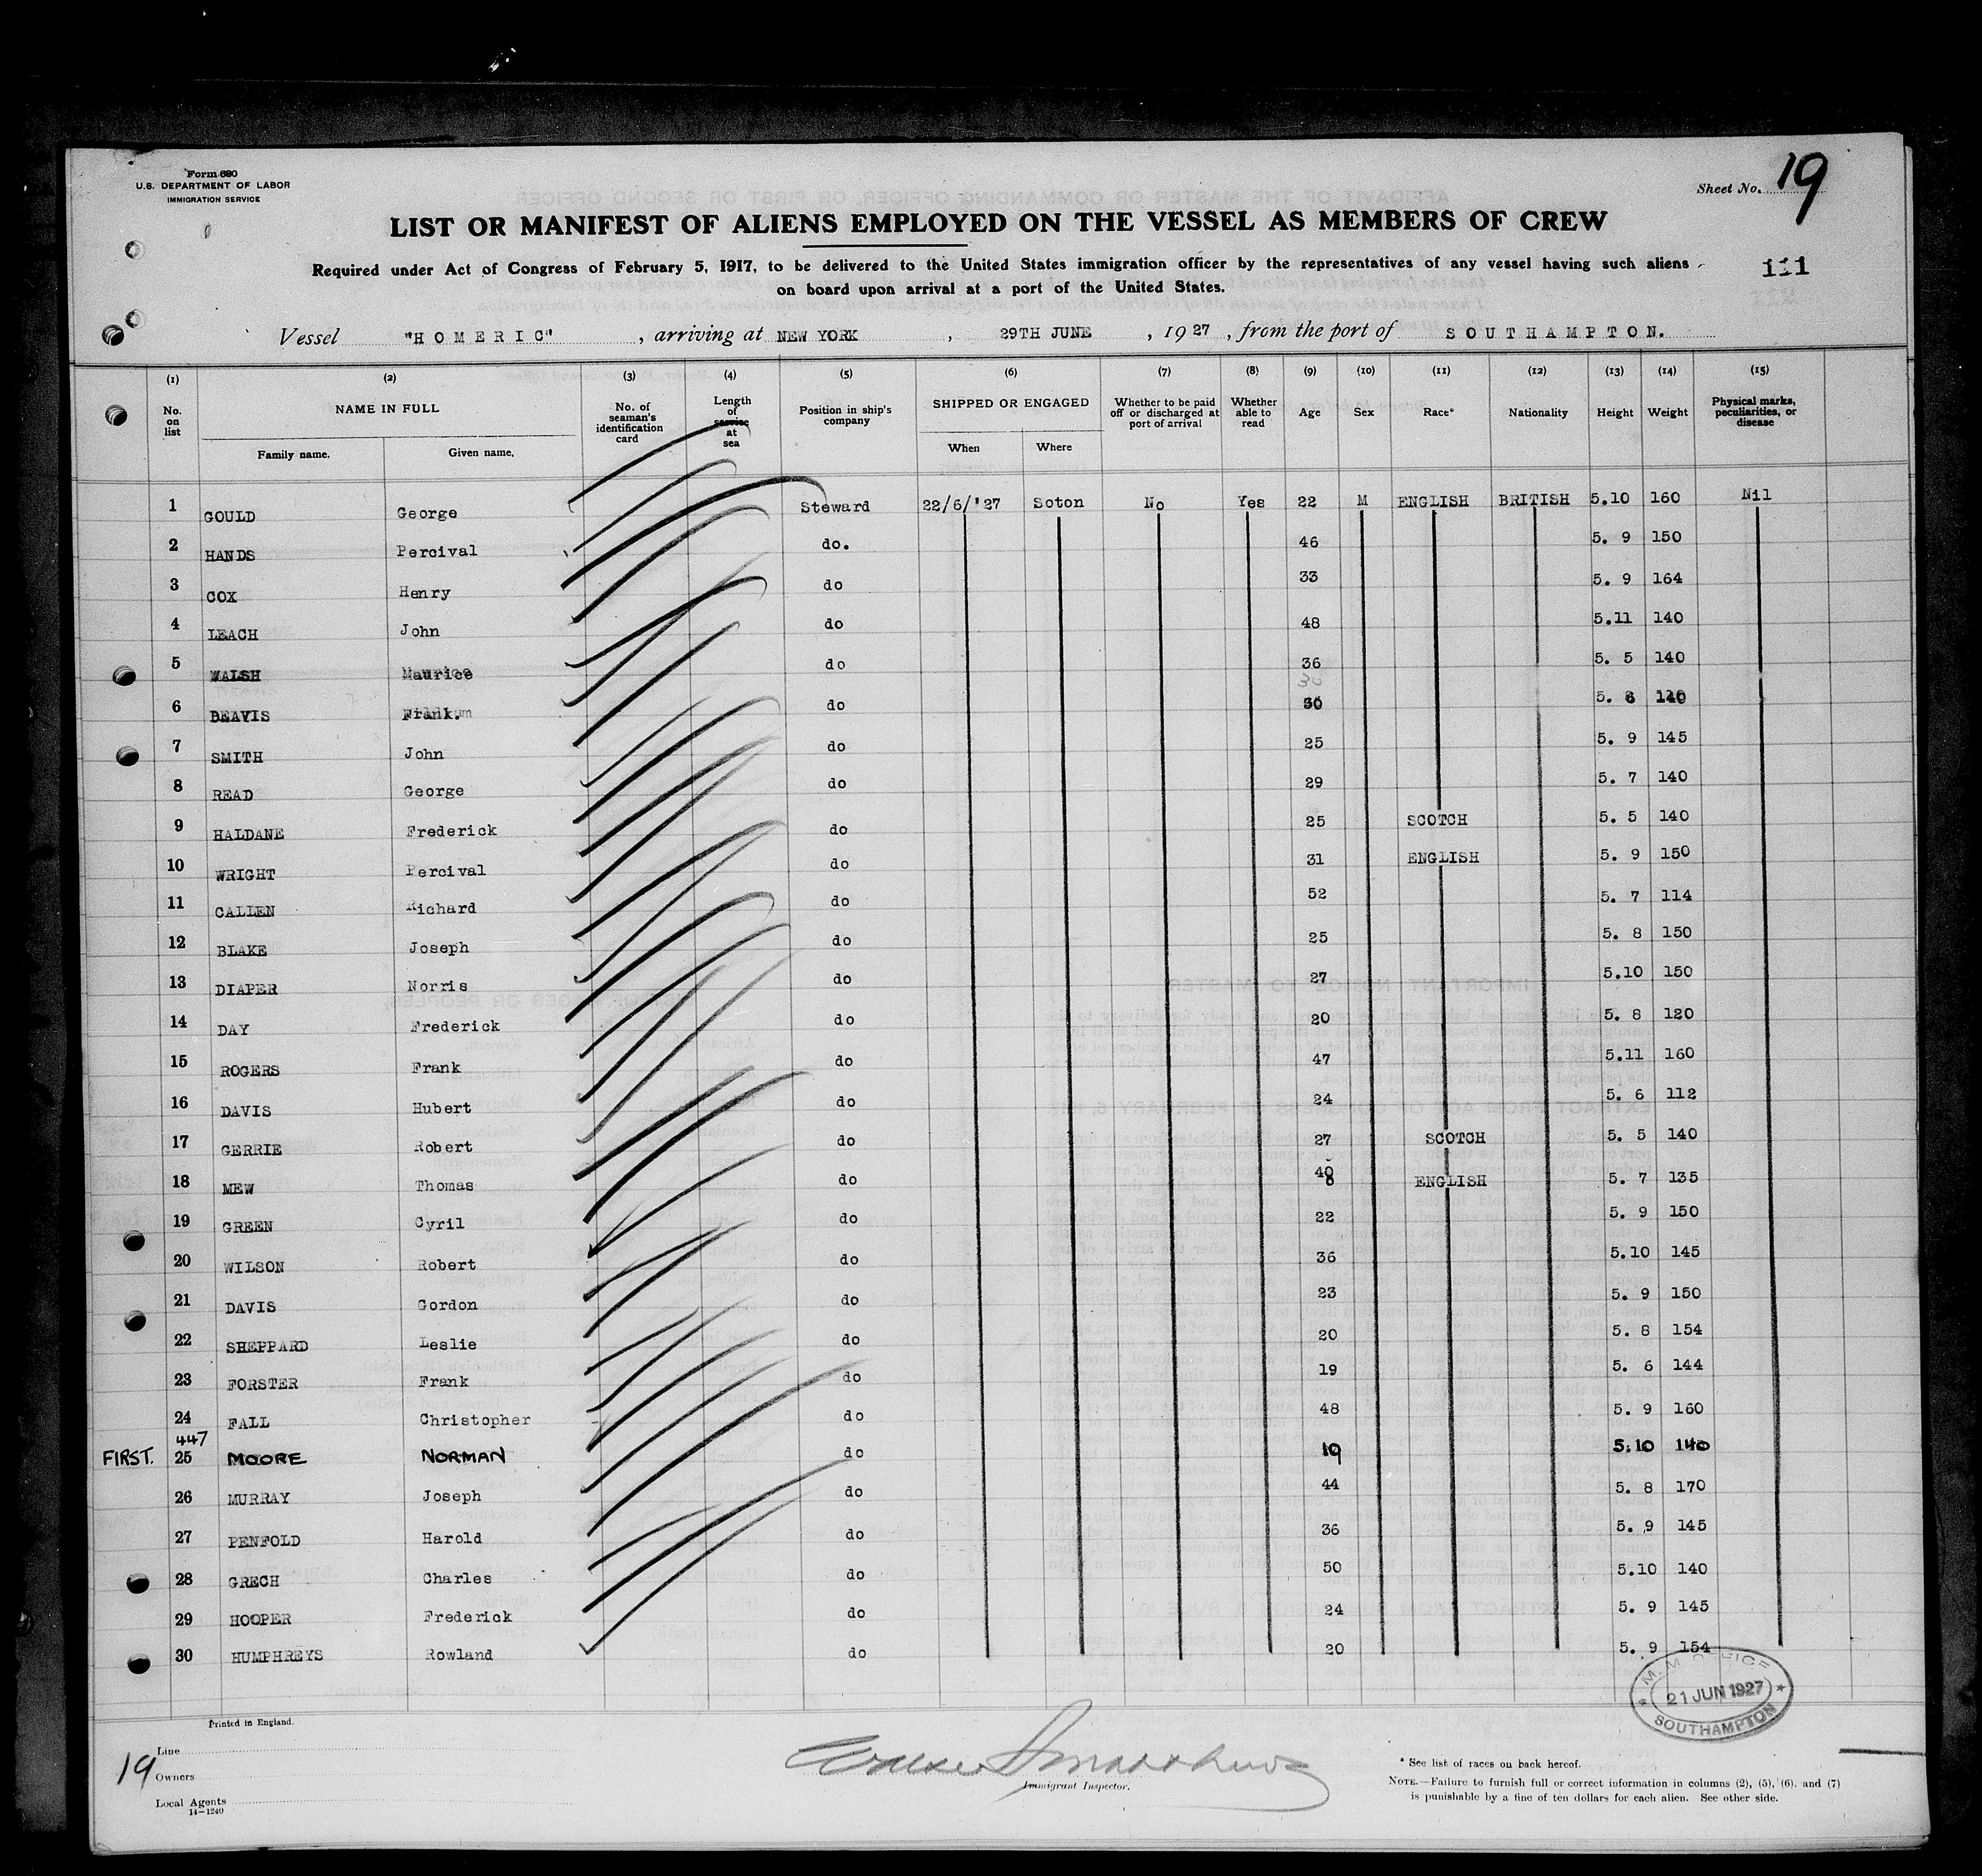 Form 680
U.S. DEPARTMENT OF LABOR
IMMIGRATION SERVICE
Sheet No. 19
LIST OR MANIFEST OF ALIENS EMPLOYED ON THE VESSEL AS MEMBERS OF CREW
Required under Act of Congress of February 5, 1917, to be delivered to the United States immigration officer by the representatives of any vessel having such aliens
on board upon arrival at a port of the United States.
111
Vessel "HOMERIC", arriving at NEW YORK, 29TH JUNE, 1927, from the port of SOUTHAMPTON.
(1) (2) (3) (4) (5) (6) (7) (8) (9) (10) (11) (12) (13) (14) (15)
No. on list NAME IN FULL Family name. Given name. No. of seaman's identification card Length of service at sea Position in ship's company SHIPPED OR ENGAGED When Where Whether to be paid off or discharged at port of arrival Whether able to read Age Sex Race* Nationality Height Weight Physical marks, peculiarities, or disease
1 GOULD George Steward 22/6/'27 Soton No Yes 22 M ENGLISH BRITISH 5.10 160 Nil
2 HANDS Percival do. 46 5. 9 150
3 COX Henry do 33 5. 9 164
4 LEACH John do 48 5.11 140
5 WALSH Maurice do 36 5. 5 140
30
6 BEAVIS Frank. do 30 5. 6 140
7 SMITH John do 25 5. 9 145
8 READ George do 29 5. 7 140
9 HALDANE Frederick do 25 SCOTCH 5. 5 140
10 WRIGHT Percival do 31 ENGLISH 5. 9 150
11 CALLEN Richard do 52 5. 7 114
12 BLAKE Joseph do 25 5. 8 150
13 DIAPER Norris do 27 5.10 150
14 DAY Frederick do 20 5. 8 120
15 ROGERS Frank do 47 5.11 160
16 DAVIS Hubert do 24 5. 6 112
17 GERRIE Robert do 27 SCOTCH 5. 5 140
18 MEW Thomas do 40 ENGLISH 5. 7 135
19 GREEN Cyril do 22 5. 9 150
20 WILSON Robert do 36 5.10 145
21 DAVIS Gordon do 23 5. 9 150
22 SHEPPARD Leslie do 20 5. 8 154
23 FORSTER Frank do 19 5. 6 144
24 FALL Christopher do 48 5. 9 160
447
FIRST. 25 MOORE NORMAN do 19 5.10 140
26 MURRAY Joseph do 44 5. 8 170
27 PENFOLD Harold do 36 5. 9 145
28 GRECH Charles do 50 5.10 140
29 HOOPER Frederick do 24 5. 9 145
30 HUMPHREYS Rowland do 20 5. 9 154
M.M. OFFICE
21 JUN 1927
SOUTHAMPTON
Printed in England.
19
Line
Owners
Local Agents
14—1240
Immigrant Inspector.
* See list of races on back hereof.
NOTE.—Failure to furnish full or correct information in columns (2), (5), (6), and (7)
is punishable by a fine of ten dollars for each alien. See other side.